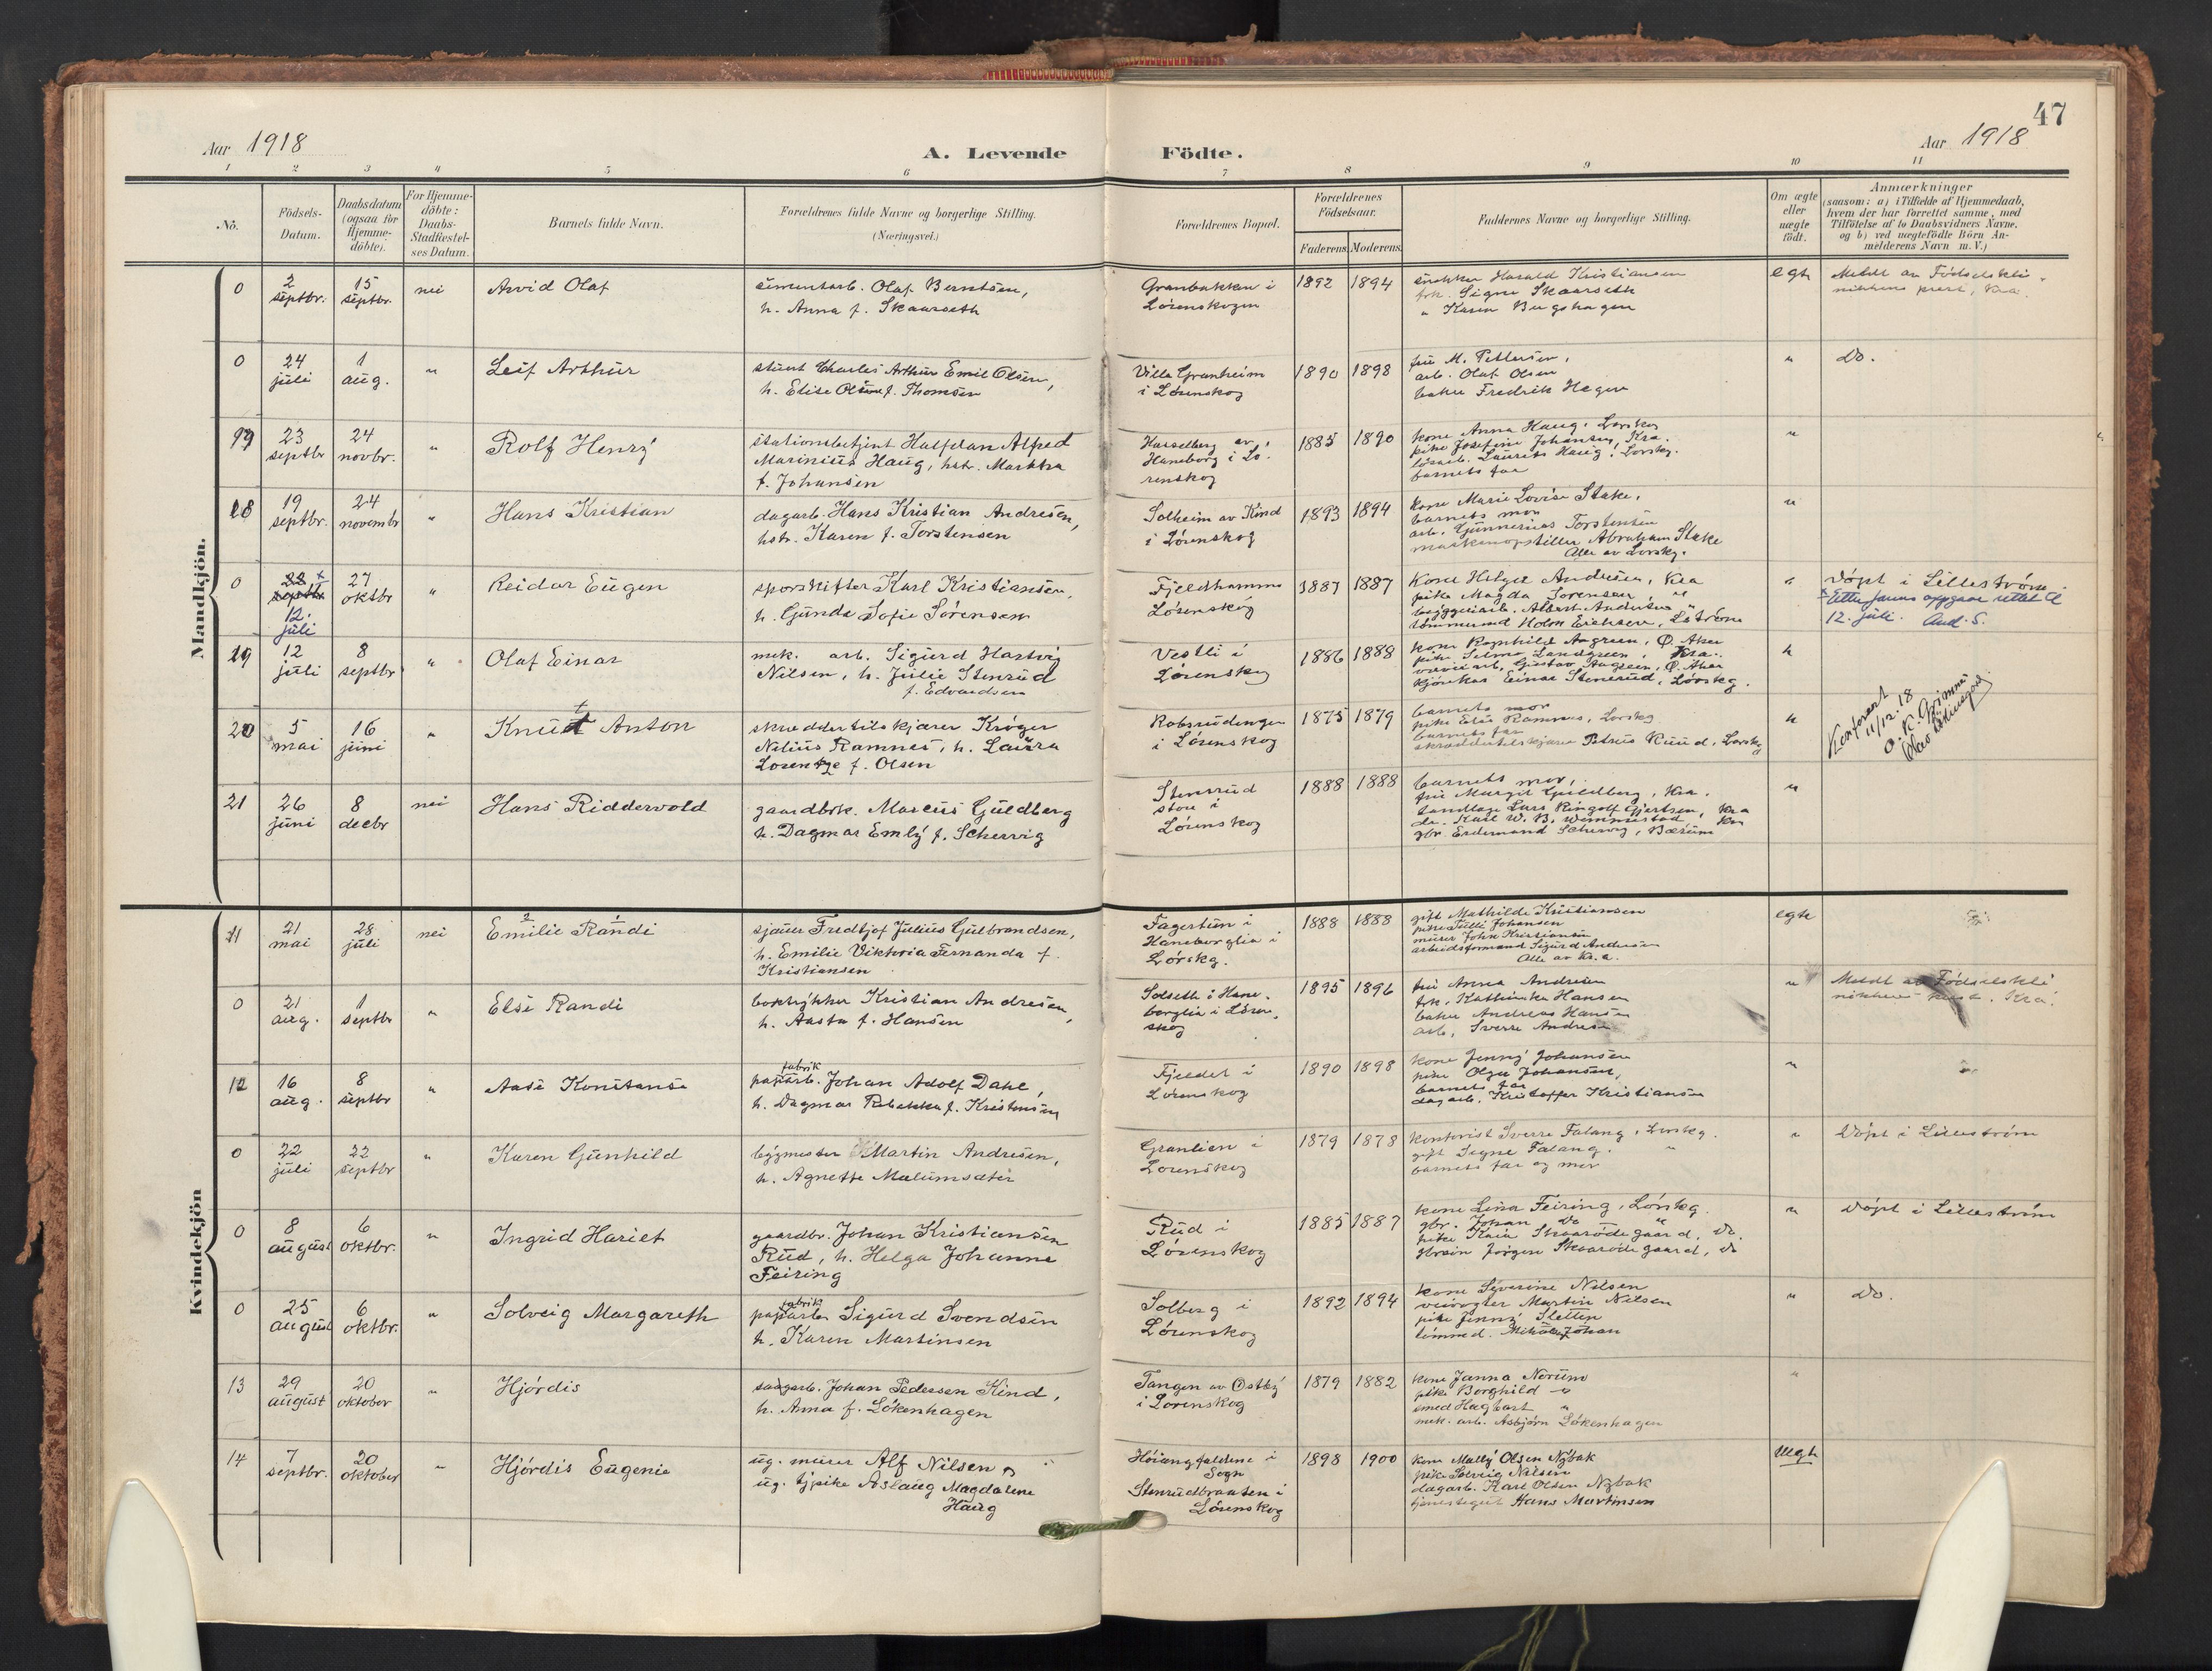 47
Aar 1918
A. Levende Födte.
Aar 1918
1 2 3 4 5 6 7 8 9 10 11
No.
Födsels-
Datum.
Daabsdatum
(ogsaa for
Hjemme-
döbte).
For Hjemme-
döbte:
Daabs-
Stadfæstel-
ses Datum.
Barnets fulde Navn.
Forældrenes fulde Navne og borgerlige Stilling.
(Næringsvei.)
Forældrenes Bopæl.
Forældrenes
Födselsaar.
Faderens. Moderens.
Faddernes Navne og borgerlige Stilling.
Om ægte
eller
uægte
født.
Anmærkninger
(saasom: a) i Tilfælde af Hjemmedaab,
hvem der har forrettet samme, med
Tilföielse af to Daabsvidners Navne.
og b) ved uægtefödte Börn An-
melderens Navn m. V.)
Mandkjön.
0
2
septbr.
15
septbr.
nei
Arvid Olaf
sementarb. Olaf Berntsen,
h. Anna f. Skaarseth
Granbakken i
Lørenskogen
1892 1894
snekker Harald Kristiansen
frk. Signe Skaarseth
" Karen Bergshagen
egte
Meldt av Födselskli-
nikkens prest, Kra.
0
24
juli
1
aug.
"
Leif Arthur
Charles Arthur Emil Olsen,
h. Elise Olsen f. Thomsen
Villa Granheim
i Lørenskog
1890 1898
fru M. Pettersen,
arb. Olaf Olsen
baker Fredrik Hegen
"
Do.
23
septbr
24
novbr.
"
Rolf Henry
stationsbetjent Halfdan Alfred
Marinius Haug, hstr. Martha
f. Johansen
Hasselberg av
Haneborg i Lø-
renskog
1885 1890
kone Anna Haug, Lørskog
pike Josefine Johansen, Kra.
løsarb. Laurits Haug, Lørskg.
barnets far
"
18
19
septbr.
24
novembr
"
Hans Kristian
dagarb. Hans Kristian Andresen,
hstr. Karen f. Torstensen
Solheim av Kind
i Lørenskog
1893 1894
kone Marie Lovise Stake,
barnets mor
arb. Gunnerius Torstensen
maskinopstiller Abraham Stake
Alle av Lørskg.
"
0
22 x
septbr
12.
juli
27
oktbr
"
Reidar Eugen
sporskifter Karl Kristiansen,
h. Gunda Sofie Sørensen
Fjeldhammer
Lørenskog
1887 1887
Kone Helga Andresen, Kra
pike Magda Sorensen "
byggeiarb. Albert Andersen "
"
Döpt i Lilleström
12. juli. Aud. S.
19
12
juli
8
septbr
"
Olaf Einar
mek. arb. Sigurd Hartvig
Nilsen, h. Julie Stenrud
f. Edvardsen
Vestli i
Lørenskog
1886 1888
kone Ragnhild Aagreen, Ø. Aker
pike Selma Landgreen, Kra.
kjörekar Einar Stenerud, Lørskg.
"
20
5
mai
16
juni
"
Knut Anton
skreddertilskjærer Krøger
Nelius Ramnes, h. Laura
Lorentze f. Olsen
Robsrudengen
i Lørenskog
1875 1879
barnets mor
pike Else Ramnes, Lorskg
barnets far
skræddertilskjærer Petrus Ruud, Lorskg
"
Konferert
11/12.18
O. K. Grimnes
21
26
juni
8
decbr
nei
Hans Riddervold
gaardbrk. Marcus Guldberg
h. Dagmar Emly f. Schervig
Stensrud
store i
Lørenskog
1888 1888
barnets mor,
fru Margit Guldberg, Kra.
tandlæge Lars Ringolf Gjertsen, Kra
gbr. Erdemand Schervig, Bærum
"
Kvindekjön
11
21
mai
28
juli
nei
Emilie Randi
sjauer Fredtjof Julius Gulbrandsen,
h. Emilie Viktoria Fernanda f.
Kristiansen
Fagertun i
Haneborglia i
Lørskg.
1888 1888
gift Mathilde Kristiansen
pike Tulli Johansen
murer John Kristiansen
arbeidsformand Sigurd Andersen
Alle av Kr.a.
egte
0
21
aug.
1
septbr
"
Else Randi
boktrykker Kristian Andresen,
h. Aasta f. Hansen
Solseth i Hane-
borglia i Lören-
skog
1895 1896
fru Anna Andresen
frk. Kathinka Hansen
baker Andreas Hansen
arb. Sverre Andresen
"
Meldt av Födselskli
nikkens prest. Kra.
12
16
aug.
8
septbr
"
Aase Konstanse
fabrik
papirarb. Johan Adolf Dahl,
h. Dagmar Rebekka f. Kristensen
Fjeldet i
Lørenskog
1890 1898
kone Jenny Johansen
pike Olga Johansen,
barnets far
dagarb. Kristoffer Kristiansen
"
0
22
juli
22
septbr
"
Karen Gunhild
bygmester Martin Andresen,
h. Agnette Malumsæter
Granlien i
Lorenskog
1879 1878
kontorist Sverre Falang, Lorskg.
gift Signe Falang. "
barnets far og mor
"
Döpt i Lilleström
0
8
august
6
oktbr.
"
Ingrid Hariet
gaardbr. Johan Kristiansen
Rud, h. Helga Johanne
Feiring
Rud i
Lørenskog
1885 1887
kone Lina Feiring, Lørskg
gbr. Johan Do "
pike Kaia Skaarødegaard, Do.
gbrsön Jörgen Skaarødegaard, Do
"
Döpt i Lilleström
0
25
august
6
oktbr.
"
Solveig Margareth
fabrik
papirarb. Sigurd Svendsen
h. Karen Martinsen
Solberg i
Lørenskog
1892 1894
kone Severine Nilsen
veivogter Martin Nilsen
pike Jenny Sletten
"
Do.
13
29
august
20
oktober
"
Hjørdis
sagarb. Johan Pedersen Kind,
h. Anna f. Løkenhagen
Tangen av Østby
i Lorenskog
1879 1882
kone Janna Norum
pike Borghild "
smed Hagbart "
mek. arb. Asbjørn Løkenhagen
"
14
7
septbr.
20
oktober
"
Hjørdis Eugenie
ug. murer Alf Nilsen og
ug. tj.pike Aslaug Magdalene
Haug
Høiangfaldene i
Sogn
Stenrudbraaten i
Lørenskog
1898 1900
kone Mally Olsen Nybak
pike Solveig Nilsen
dagarb. Karl Olsen Nybak
tjenestegut Hans Martinsen
uegte